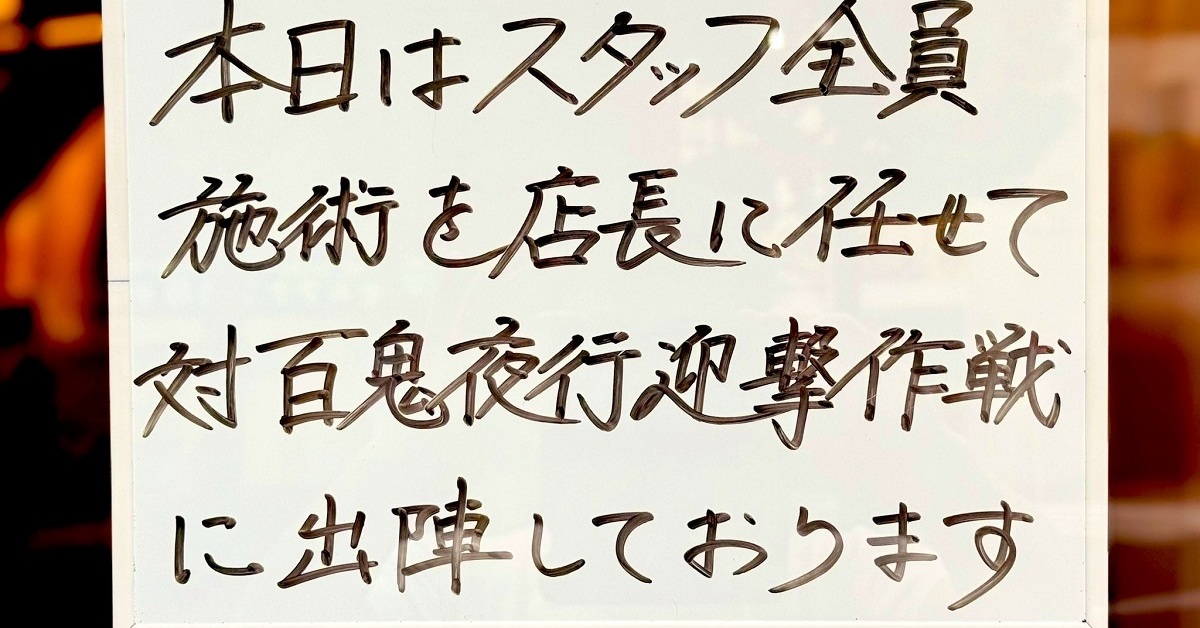 本日はスタッフ全員
施術を店長に任せて
対百鬼夜行迎撃作戦
に出陣しております